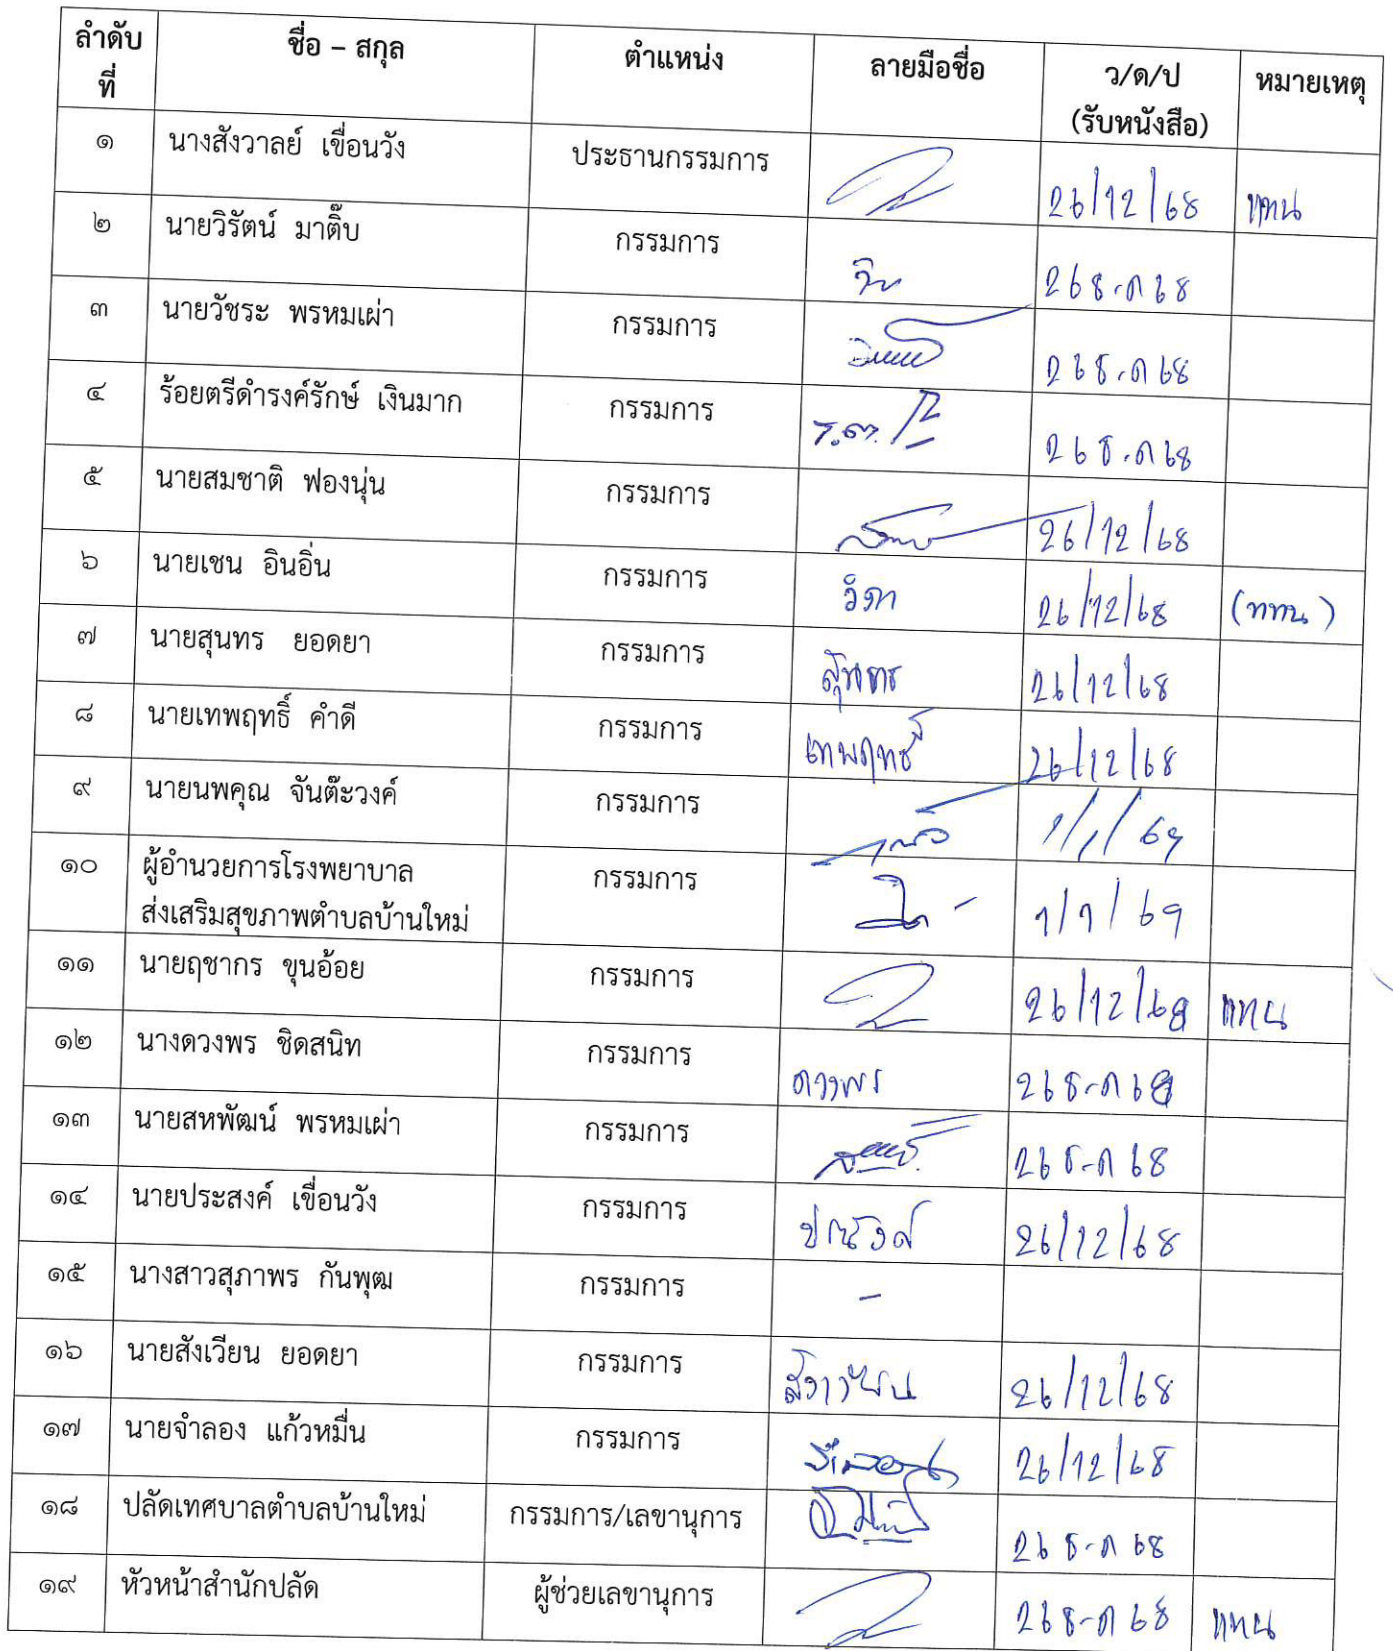 ลำดับที่ ชื่อ – สกุล ตำแหน่ง ลายมือชื่อ ว/ด/ป (รับหนังสือ) หมายเหตุ
๑ นางสังวาลย์ เขื่อนวัง ประธานกรรมการ 26/12/68 แทน
๒ นายวิรัตน์ มาติ๊บ กรรมการ 26 ธ.ค 68
๓ นายวัชระ พรหมเผ่า กรรมการ 26 ธ.ค 68
๔ ร้อยตรีดำรงค์รักษ์ เงินมาก กรรมการ ร.ต. 26 ธ.ค 68
๕ นายสมชาติ ฟองนุ่น กรรมการ 26/12/68
๖ นายเชน อินอิ่น กรรมการ วิภา 26/12/68 (แทน)
๗ นายสุนทร ยอดยา กรรมการ สุนทร 26/12/68
๘ นายเทพฤทธิ์ คำดี กรรมการ เทพฤทธิ์ 26/12/68
๙ นายนพคุณ จันต๊ะวงค์ กรรมการ 1/1/69
๑๐ ผู้อำนวยการโรงพยาบาล กรรมการ 1/1/69
ส่งเสริมสุขภาพตำบลบ้านใหม่
๑๑ นายฤชากร ขุนอ้อย กรรมการ 26/12/68 แทน
๑๒ นางดวงพร ชิดสนิท กรรมการ ดวงพร 26 ธ-ค 68
๑๓ นายสหพัฒน์ พรหมเผ่า กรรมการ 26 ธ-ค 68
๑๔ นายประสงค์ เขื่อนวัง กรรมการ ประสงค์ 26/12/68
๑๕ นางสาวสุภาพร กันพุฒ กรรมการ -
๑๖ นายสังเวียน ยอดยา กรรมการ 26/12/68
๑๗ นายจำลอง แก้วหมื่น กรรมการ จำลอง 26/12/68
๑๘ ปลัดเทศบาลตำบลบ้านใหม่ กรรมการ/เลขานุการ 26 ธ-ค 68
๑๙ หัวหน้าสำนักปลัด ผู้ช่วยเลขานุการ 26 ธ-ค 68 แทน